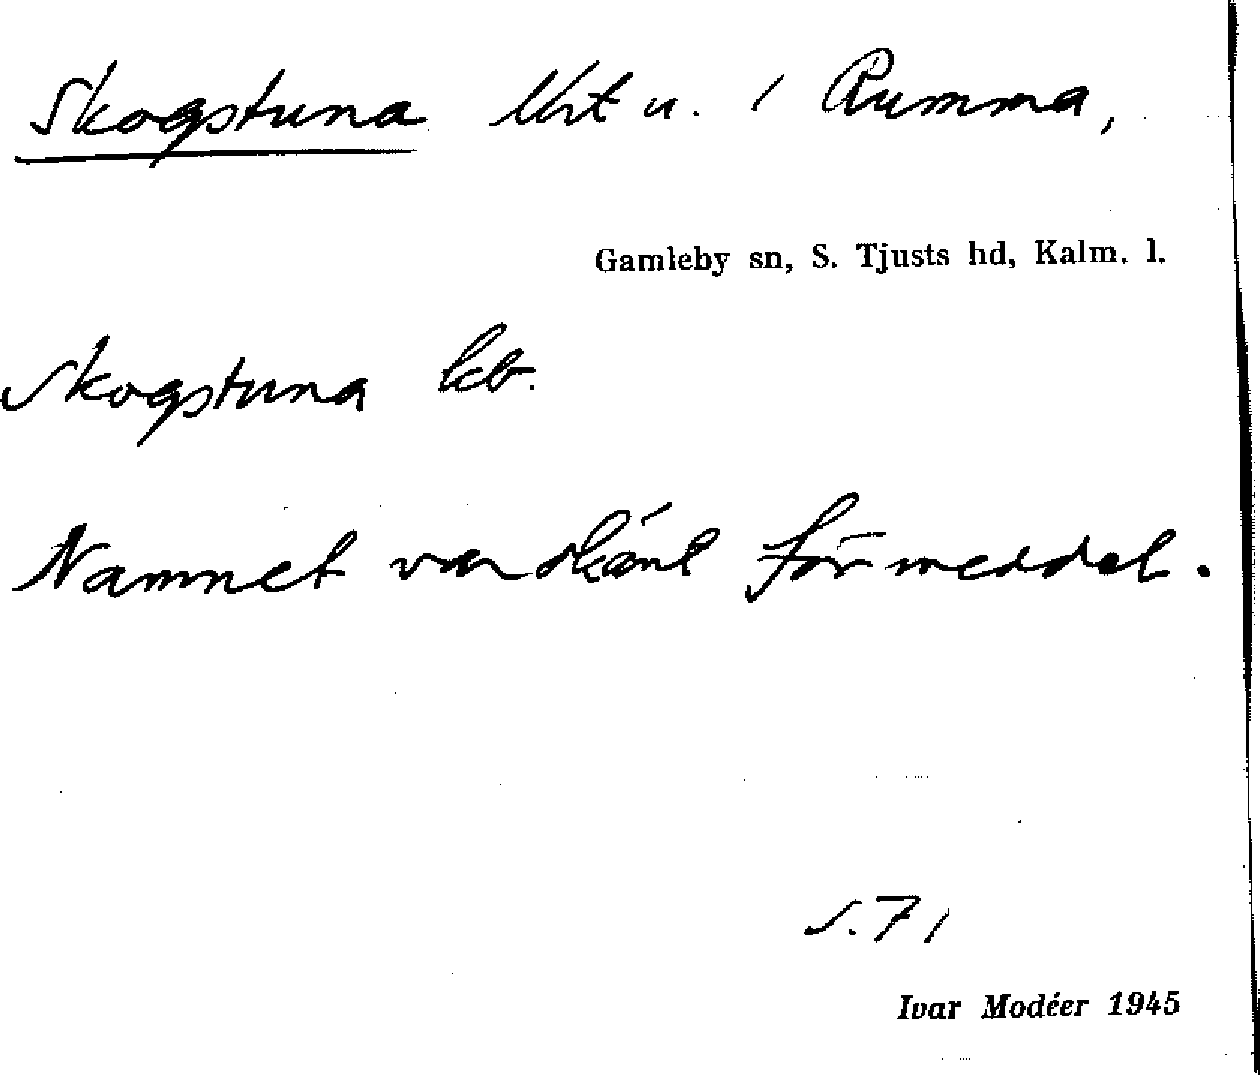 Skogstuna lht u. i Rumma,
Gamleby sn, S. Tjusts hd, Kalm. l.
Skogstuna kb.
Namnet var okänt för meddel.
s. 71
Ivar Modéer 1945